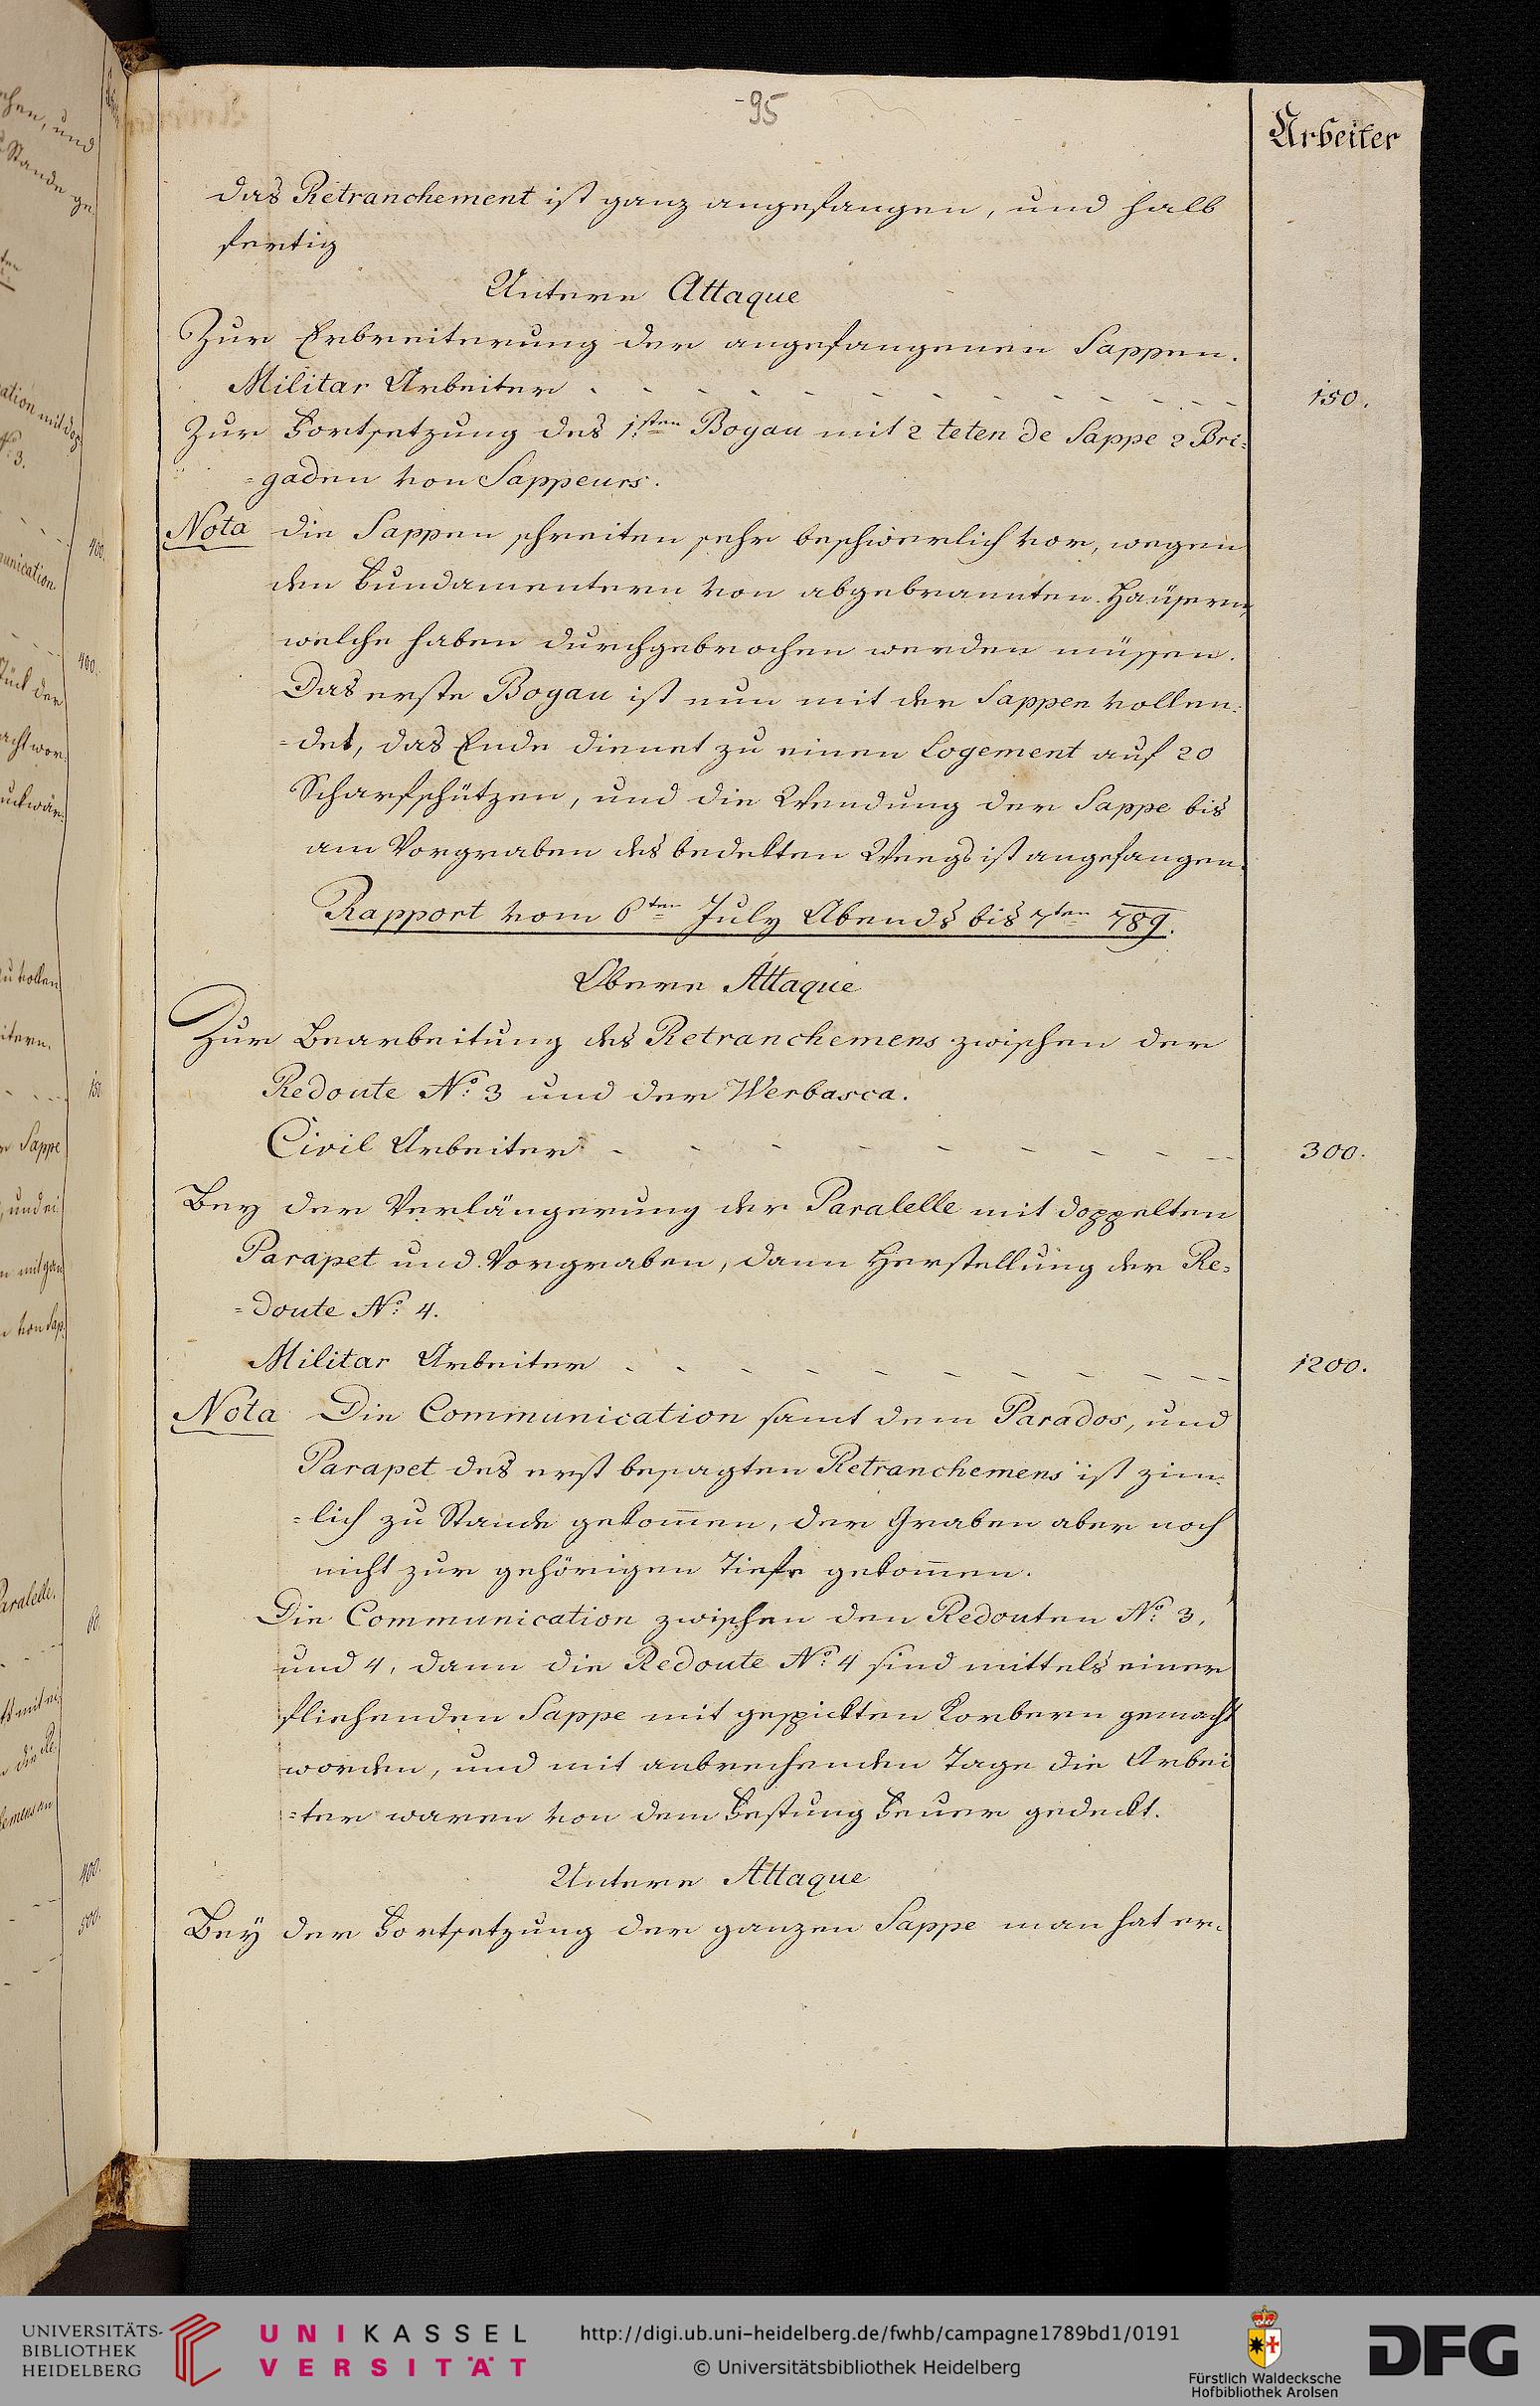 95
Arbeiter
das Retranchement ist ganz angefangen, und halb
fertig
Untere Attaque
Zur Erbreiterung der angefangenen Sappen.
Militar Arbeiter - - - - - - - - - - - - 150.
Zur Fortsetzung des 1sten Boyau mit 2 teten de Sappe 2 Bri=
=gaden von Sappeurs.
Nota die Sappen schreiten sehr beschwerlich vor, wegen
den Fundamentern von abgebrannten Häusern,
welche haben durchgebrochen werden müssen.
Das erste Boyau ist nun mit der Sappen vollen=
=det, das Ende dienet zu einen Logement auf 20
Scharfschützen, und die Wendung der Sappe bis
am Vorgraben des bedekten Weegs ist angefangen.
Rapport vom 6ten July Abends bis 7ten 789.
Obere Attaque
Zur Bearbeitung des Retranchemens zwischen der
Redoute No. 3 und der Werbasca.
Civil Arbeiter - - - - - - - - - - 300.
Bey der Verlängerung der Paralelle mit doppelten
Parapet und Vorgraben, dann Herstellung der Re=
=doute No. 4.
Militar Arbeiter - - - - - - - - - - - 1200.
Nota Die Communication samt dem Parados, und
Parapet des erst besagten Retranchemens ist zim=
=lich zu Stande gekom̄en, der Graben aber noch
nicht zur gehörigen Tiefe gekom̄en.
Die Communication zwischen den Redouten No. 3,
und 4, dann die Redoute No. 4 sind mittels einer
fliehenden Sappe mit gespickten Korbern gemacht
worden, und mit anbrechenden Tage die Arbei
=ter waren von dem Festung Feuer gedeckt.
Untere Attaque
Bey der Fortsetzung der ganzen Sappe man hat er=
UNIVERSITÄTS-
BIBLIOTHEK
HEIDELBERG
UNIKASSEL
VERSITÄT
http://digi.ub.uni-heidelberg.de/fwhb/campagne1789bd1/0191
© Universitätsbibliothek Heidelberg
Fürstlich Waldecksche
Hofbibliothek Arolsen
DFG